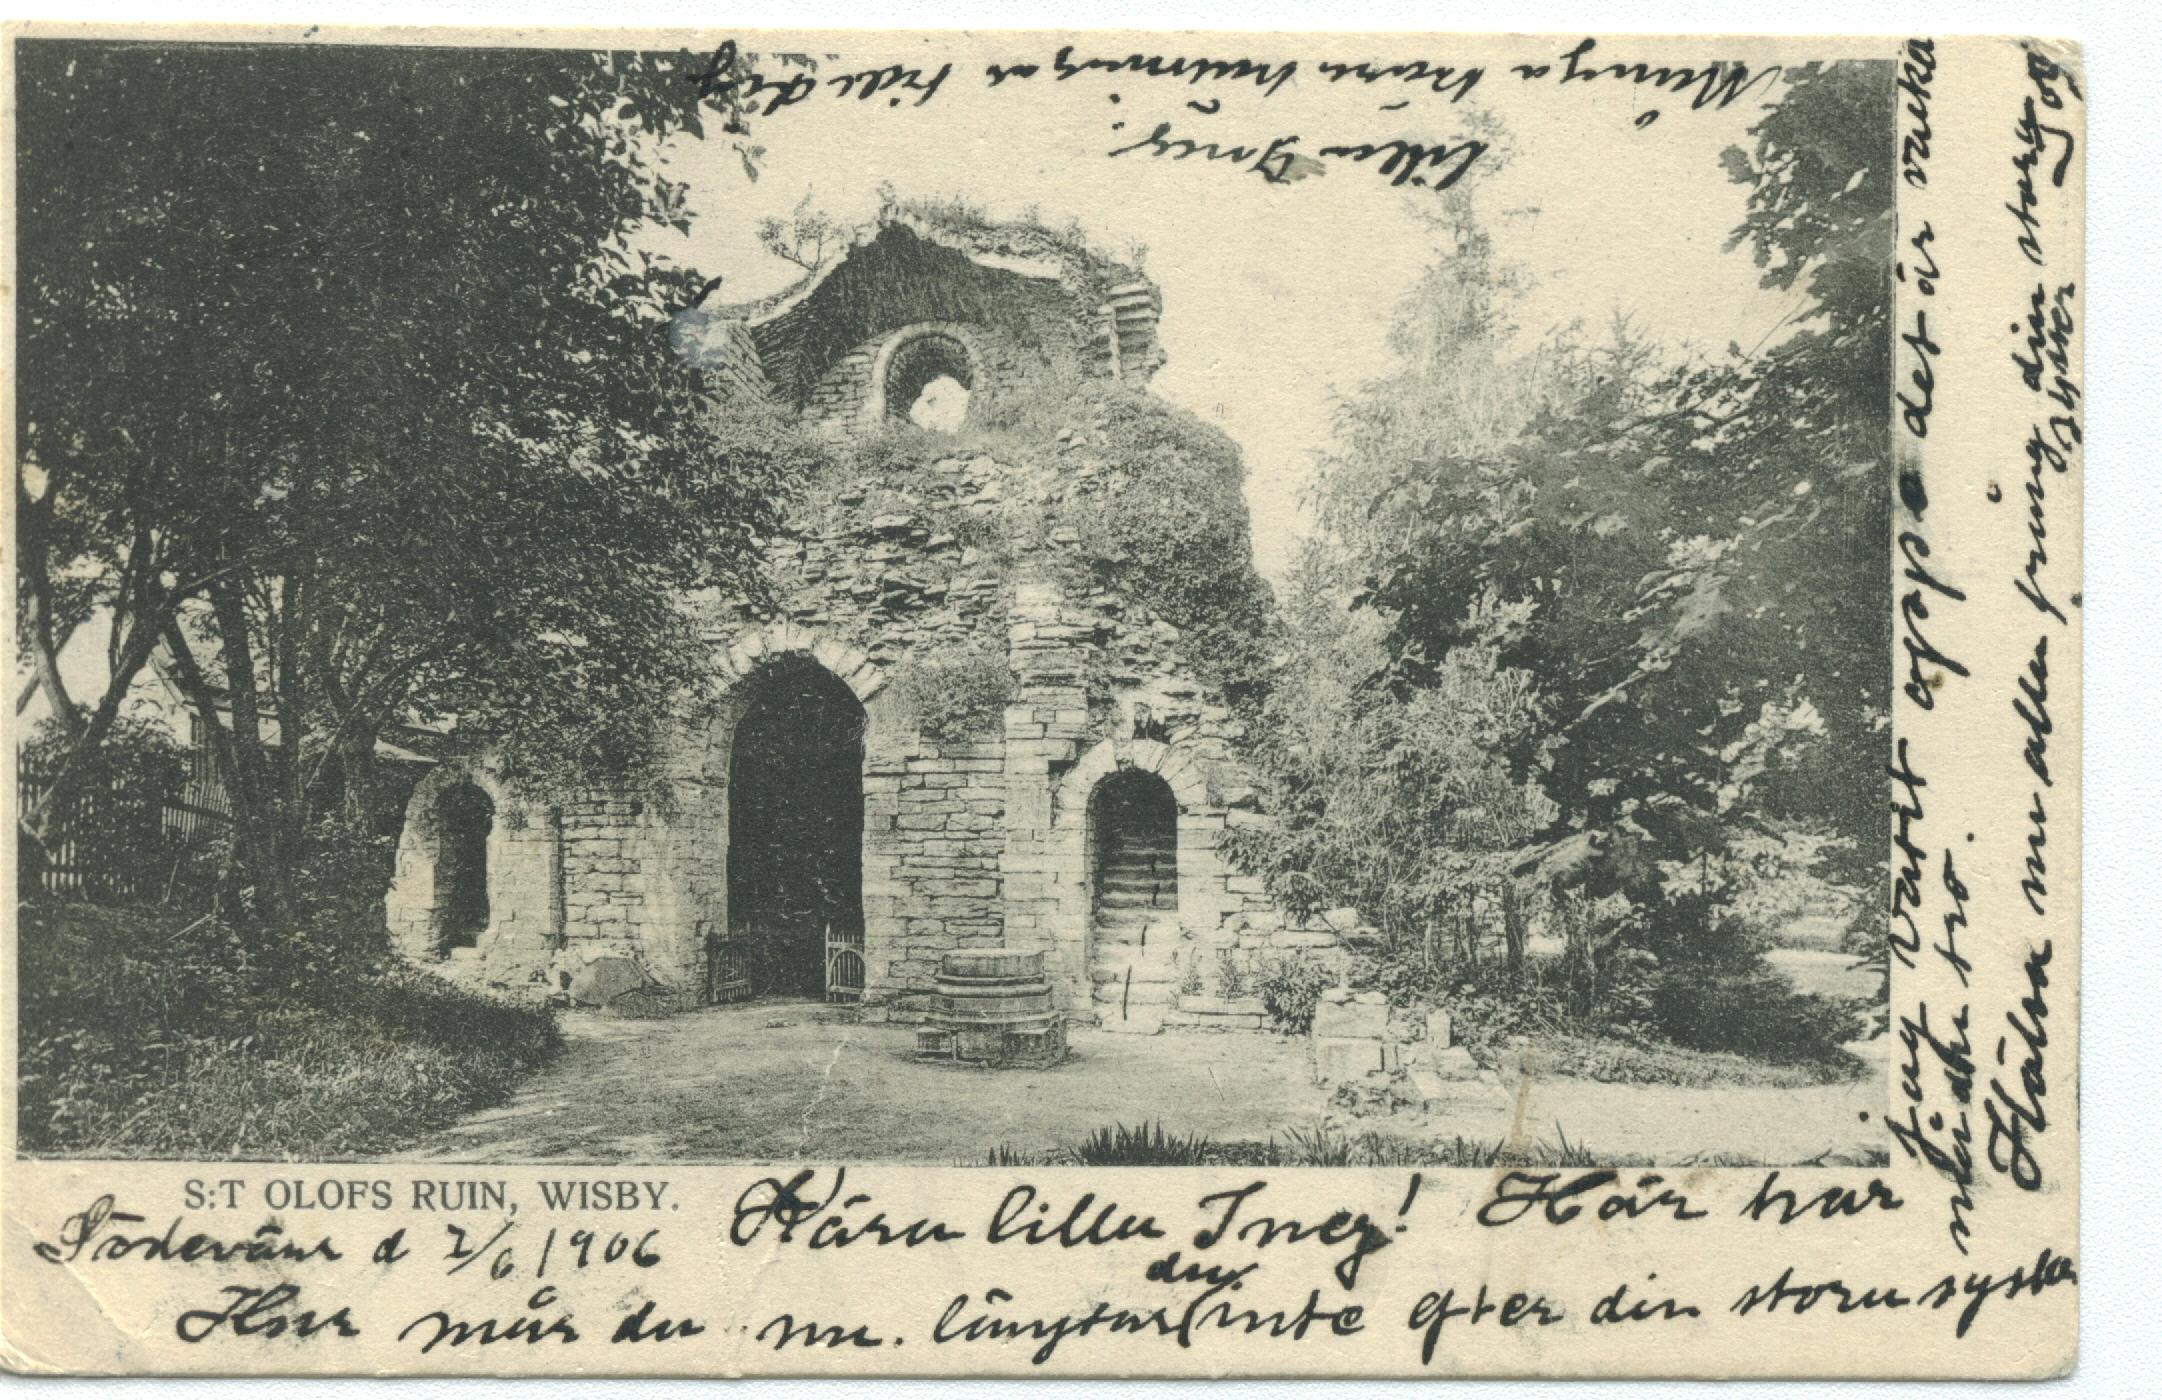 S:T OLOFS RUIN, WISBY.
Södevärn d 2/6 1906
Kära lilla Inez! Här har
jag varit oppe det är vacka
må du tro.
Hur mår du nu. längtar du inte efter din stora syster
Hälsa nu alla från din stora
syster
Många kära hälsningar till dig
lilla Inez!